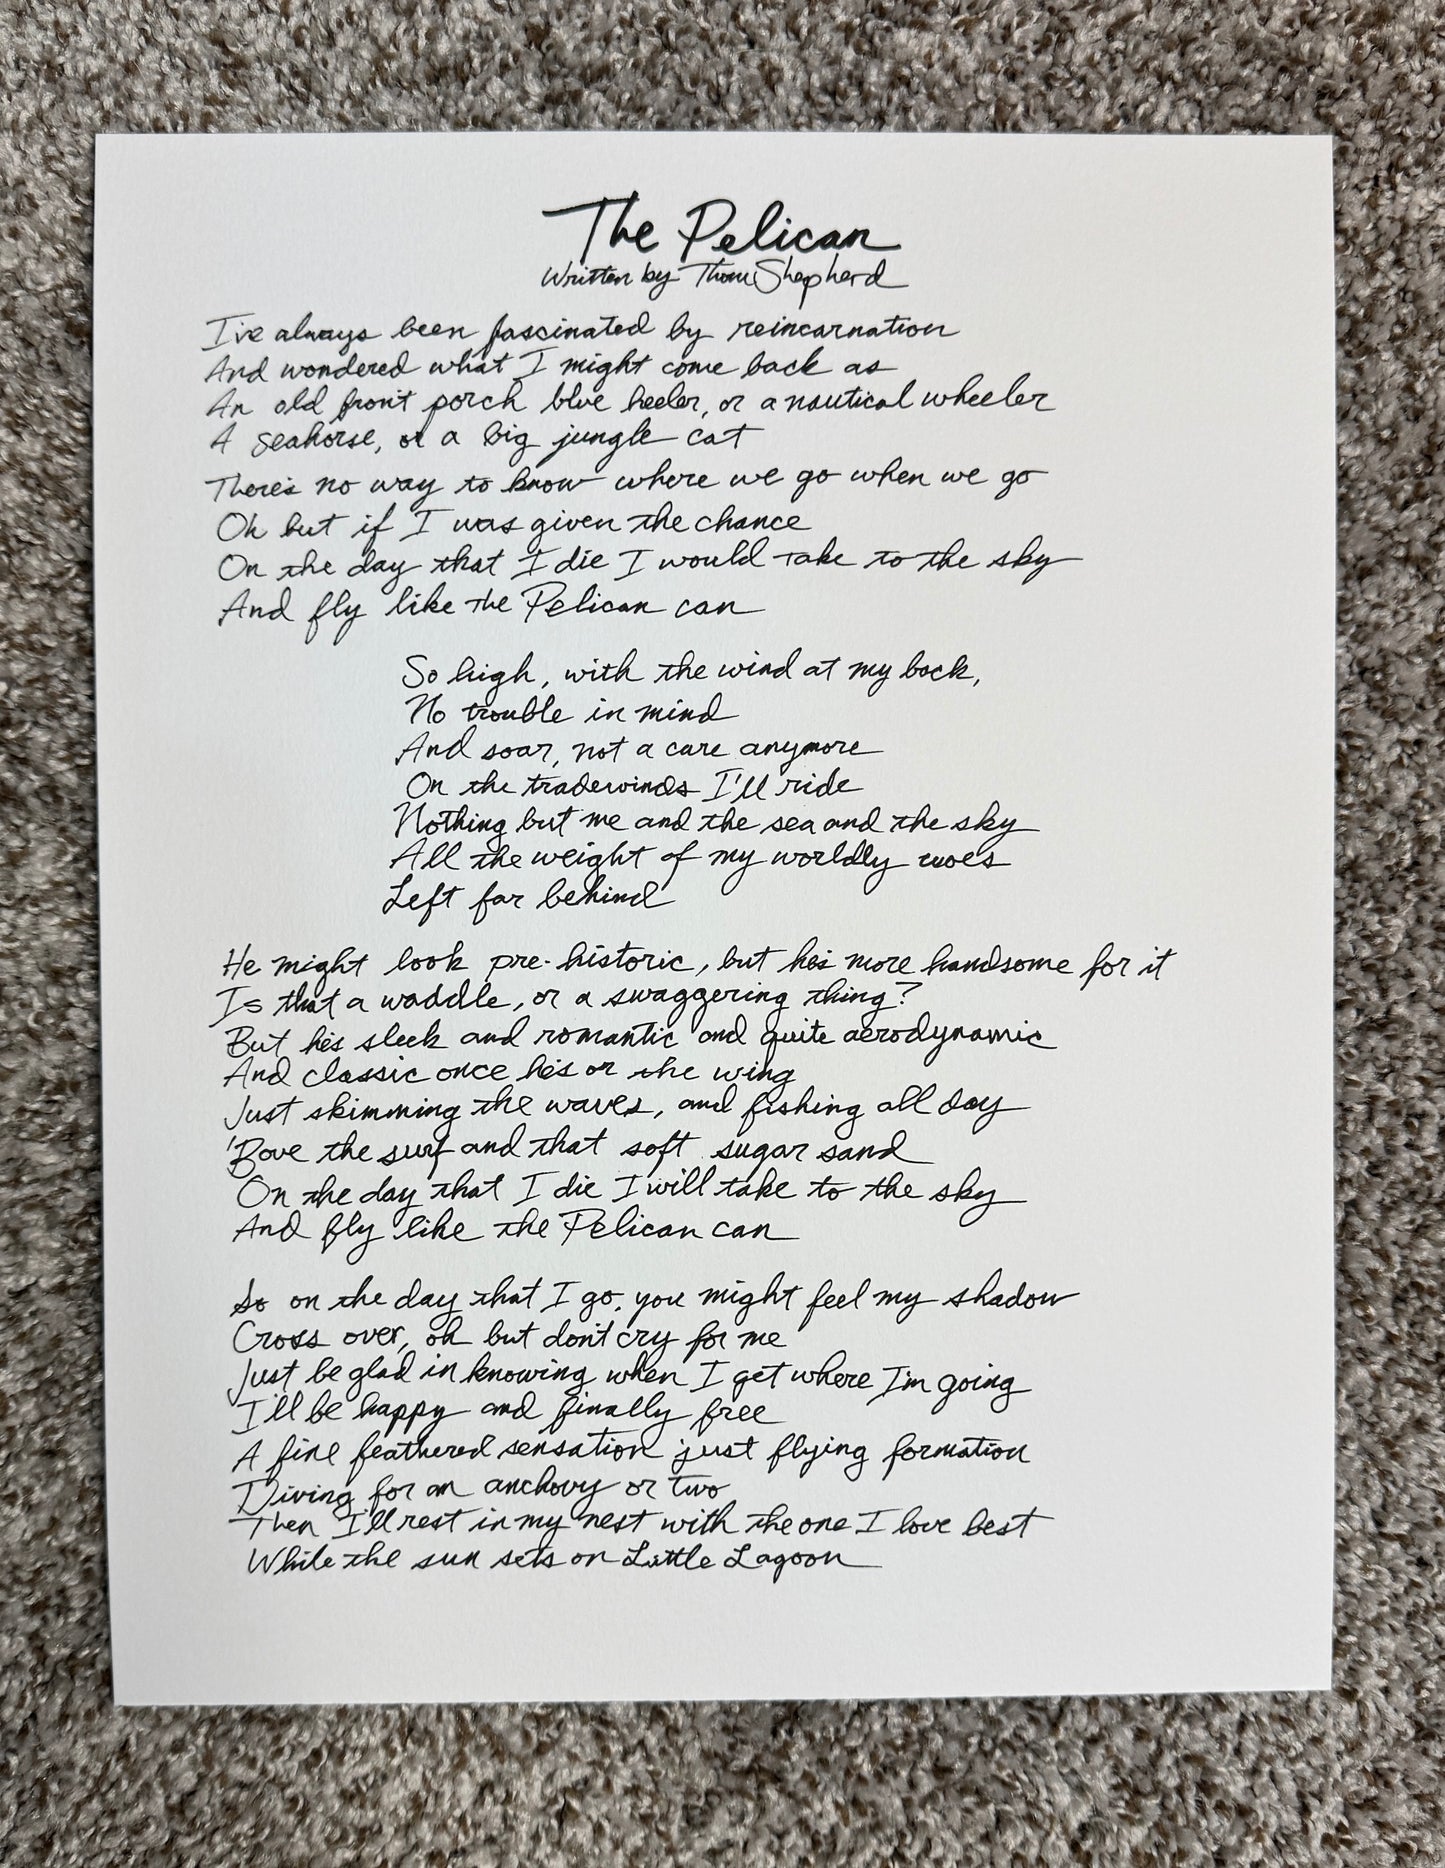 The Pelican
Written by Thom Shepherd
I've always been fascinated by reincarnation
And wondered what I might come back as
An old front porch blue heeler, or a nautical wheeler
A seahorse, or a big jungle cat
There's no way to know where we go when we go
Oh but if I was given the chance
On the day that I die I would take to the sky
And fly like the Pelican can
So high, with the wind at my back,
No trouble in mind
And soar, not a care anymore
On the tradewinds I'll ride
Nothing but me and the sea and the sky
All the weight of my worldly woes
Left far behind
He might look pre-historic, but he's more handsome for it
Is that a waddle, or a swaggering thing?
But he's sleek and romantic and quite aerodynamic
And classic once he's on the wing
Just skimming the waves, and fishing all day
'Bove the surf and that soft sugar sand
On the day that I die I will take to the sky
And fly like the Pelican can
So on the day that I go, you might feel my shadow
Cross over, oh but don't cry for me
Just be glad in knowing when I get where I'm going
I'll be happy and finally free
A fine feathered sensation just flying formation
Diving for an anchovy or two
Then I'll rest in my nest with the one I love best
While the sun sets on Little Lagoon